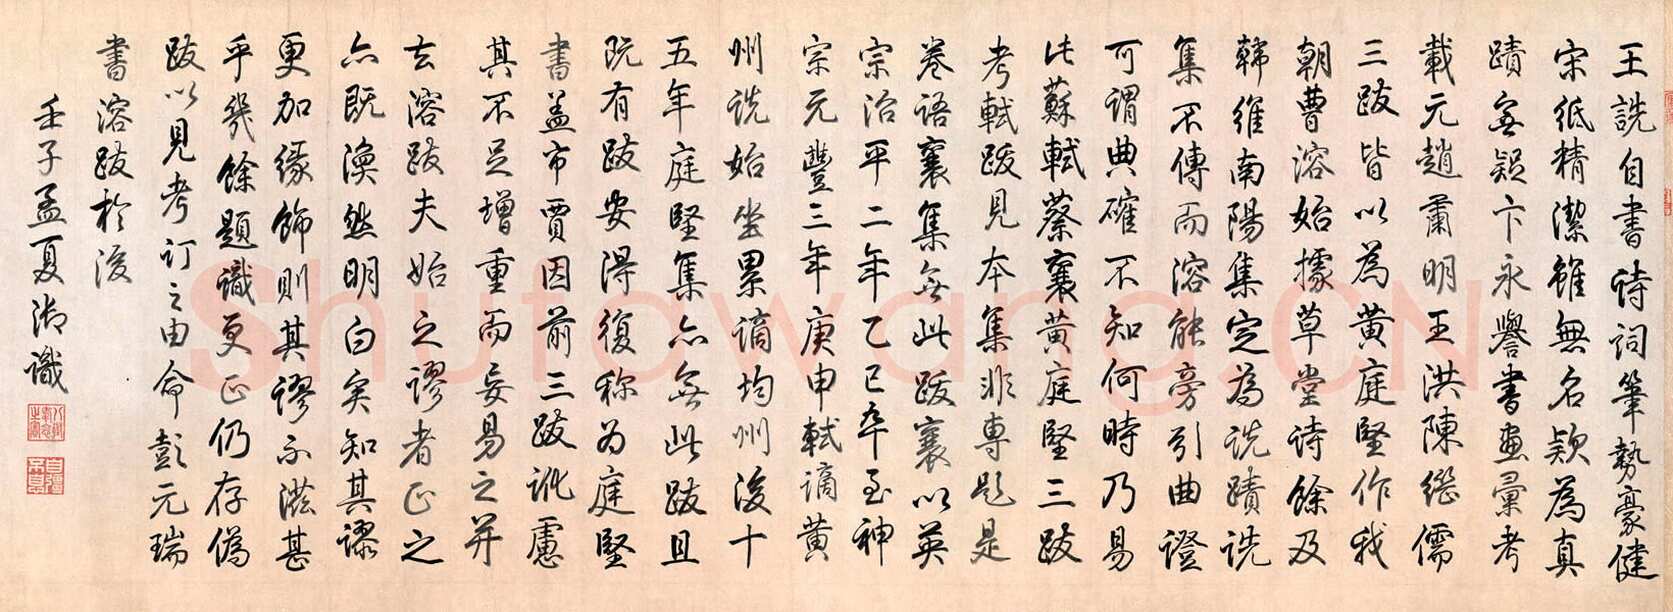 王詵自書詩詞筆勢豪健
宋紙精潔雖無名款為真
蹟無疑卞永譽書畫彙考
載元趙肅明王洪陳繼儒
三跋皆以為黃庭堅作我
朝曹溶始據草堂詩餘及
韓維南陽集定為詵蹟詵
集不傳而溶能旁引曲證
可謂典確不知何時乃易
以蘇軾蔡襄黃庭堅三跋
考軾跋見本集非專題是
卷語襄集無此跋襄以英
宗治平二年乙巳卒至神
宗元豐三年庚申軾謫黃
州詵始坐累謫均州後十
五年庭堅集亦無此跋且
既有跋安得復稱為庭堅
書蓋市賈因前三跋訛處
其不足增重而妄易之并
去溶跋夫始之謬者正之
亦既渙然明白矣知其謬
更加緣飾則其謬不滋甚
乎幾餘題識更正仍存偽
跋以見考訂之由命彭元瑞
書溶跋於後
壬子孟夏御識
八徵耄念之寶
自彊不息
Shutawang.CN